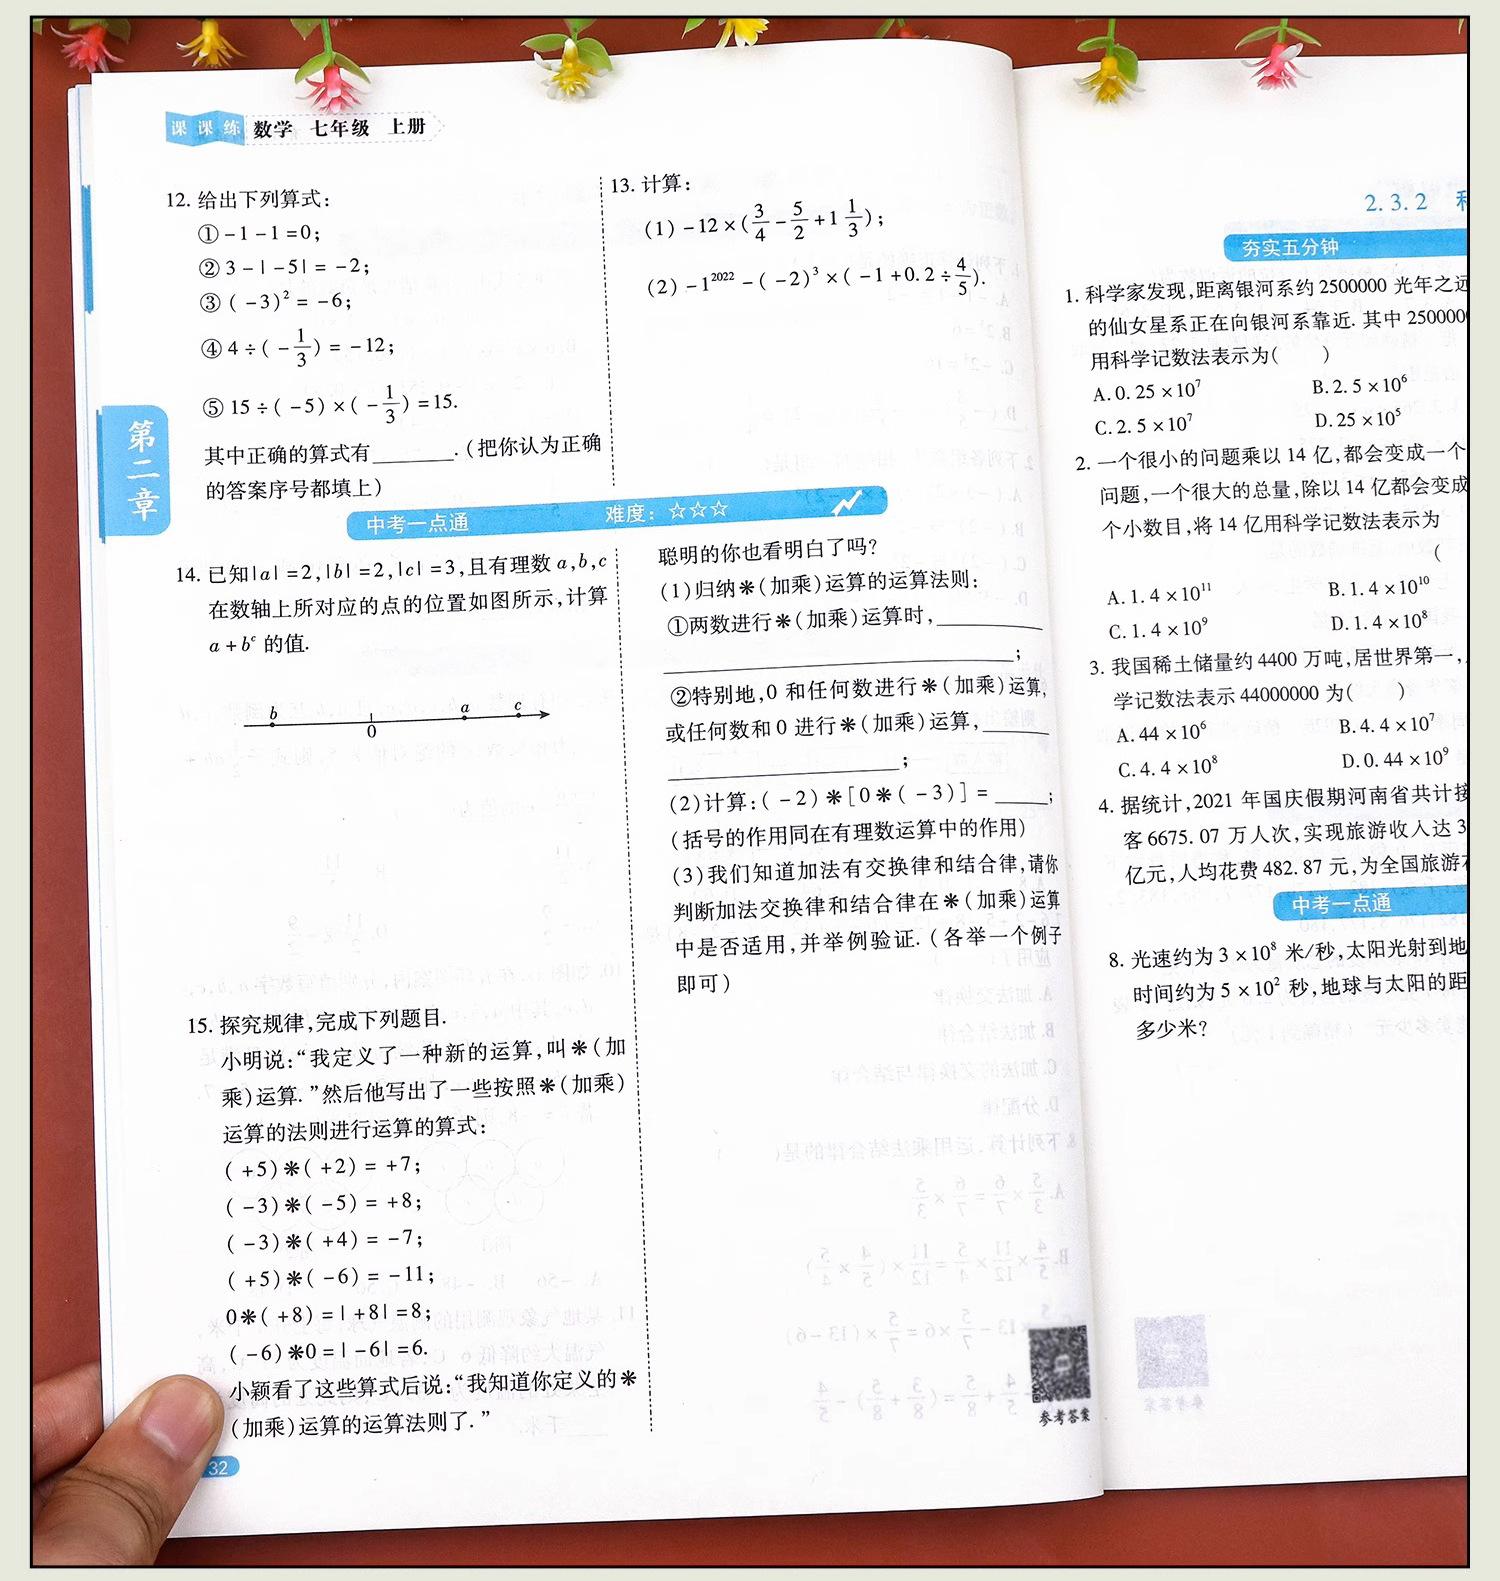 课课练 数学 七年级 上册
12. 给出下列算式:
①-1-1=0;
②3-|-5|=-2;
③(-3)²=-6;
④4÷(-1/3)=-12;
⑤15÷(-5)×(-1/3)=15.
其中正确的算式有________.(把你认为正确
的答案序号都填上)
13. 计算:
(1)-12×(3/4-5/2+1 1/3);
(2)-1²⁰²²-(-2)³×(-1+0.2÷4/5).
第二章
中考一点通 难度:☆☆☆
14. 已知|a|=2,|b|=2,|c|=3,且有理数a,b,c
在数轴上所对应的点的位置如图所示,计算
a+bᶜ的值.
b 0 a c
15. 探究规律,完成下列题目.
小明说:“我定义了一种新的运算,叫❋(加
乘)运算.”然后他写出了一些按照❋(加乘)
运算的法则进行运算的算式:
(+5)❋(+2)=+7;
(-3)❋(-5)=+8;
(-3)❋(+4)=-7;
(+5)❋(-6)=-11;
0❋(+8)=|+8|=8;
(-6)❋0=|-6|=6.
小颖看了这些算式后说:“我知道你定义的❋
(加乘)运算的运算法则了.”
32
聪明的你也看明白了吗?
(1)归纳❋(加乘)运算的运算法则:
①两数进行❋(加乘)运算时,__________
______________________________;
②特别地,0和任何数进行❋(加乘)运算,
或任何数和0进行❋(加乘)运算,______
____________________;
(2)计算:(-2)❋[0❋(-3)]=_____;
(括号的作用同在有理数运算中的作用)
(3)我们知道加法有交换律和结合律,请你
判断加法交换律和结合律在❋(加乘)运算
中是否适用,并举例验证.(各举一个例子
即可)
参考答案
2.3.2
夯实五分钟
1. 科学家发现,距离银河系约2500000光年之远
的仙女星系正在向银河系靠近.其中250000
用科学记数法表示为( )
A.0.25×10⁷ B.2.5×10⁶
C.2.5×10⁷ D.25×10⁵
2. 一个很小的问题乘以14亿,都会变成一个
问题,一个很大的总量,除以14亿都会变成
个小数目,将14亿用科学记数法表示为
(
A.1.4×10¹¹ B.1.4×10¹⁰
C.1.4×10⁹ D.1.4×10⁸
3. 我国稀土储量约4400万吨,居世界第一,
学记数法表示44000000为( )
A.44×10⁶ B.4.4×10⁷
C.4.4×10⁸ D.0.44×10⁹
4. 据统计,2021年国庆假期河南省共计接
客6675.07万人次,实现旅游收入达3
亿元,人均花费482.87元,为全国旅游
中考一点通
8. 光速约为3×10⁸米/秒,太阳光射到地
时间约为5×10²秒,地球与太阳的距
多少米?